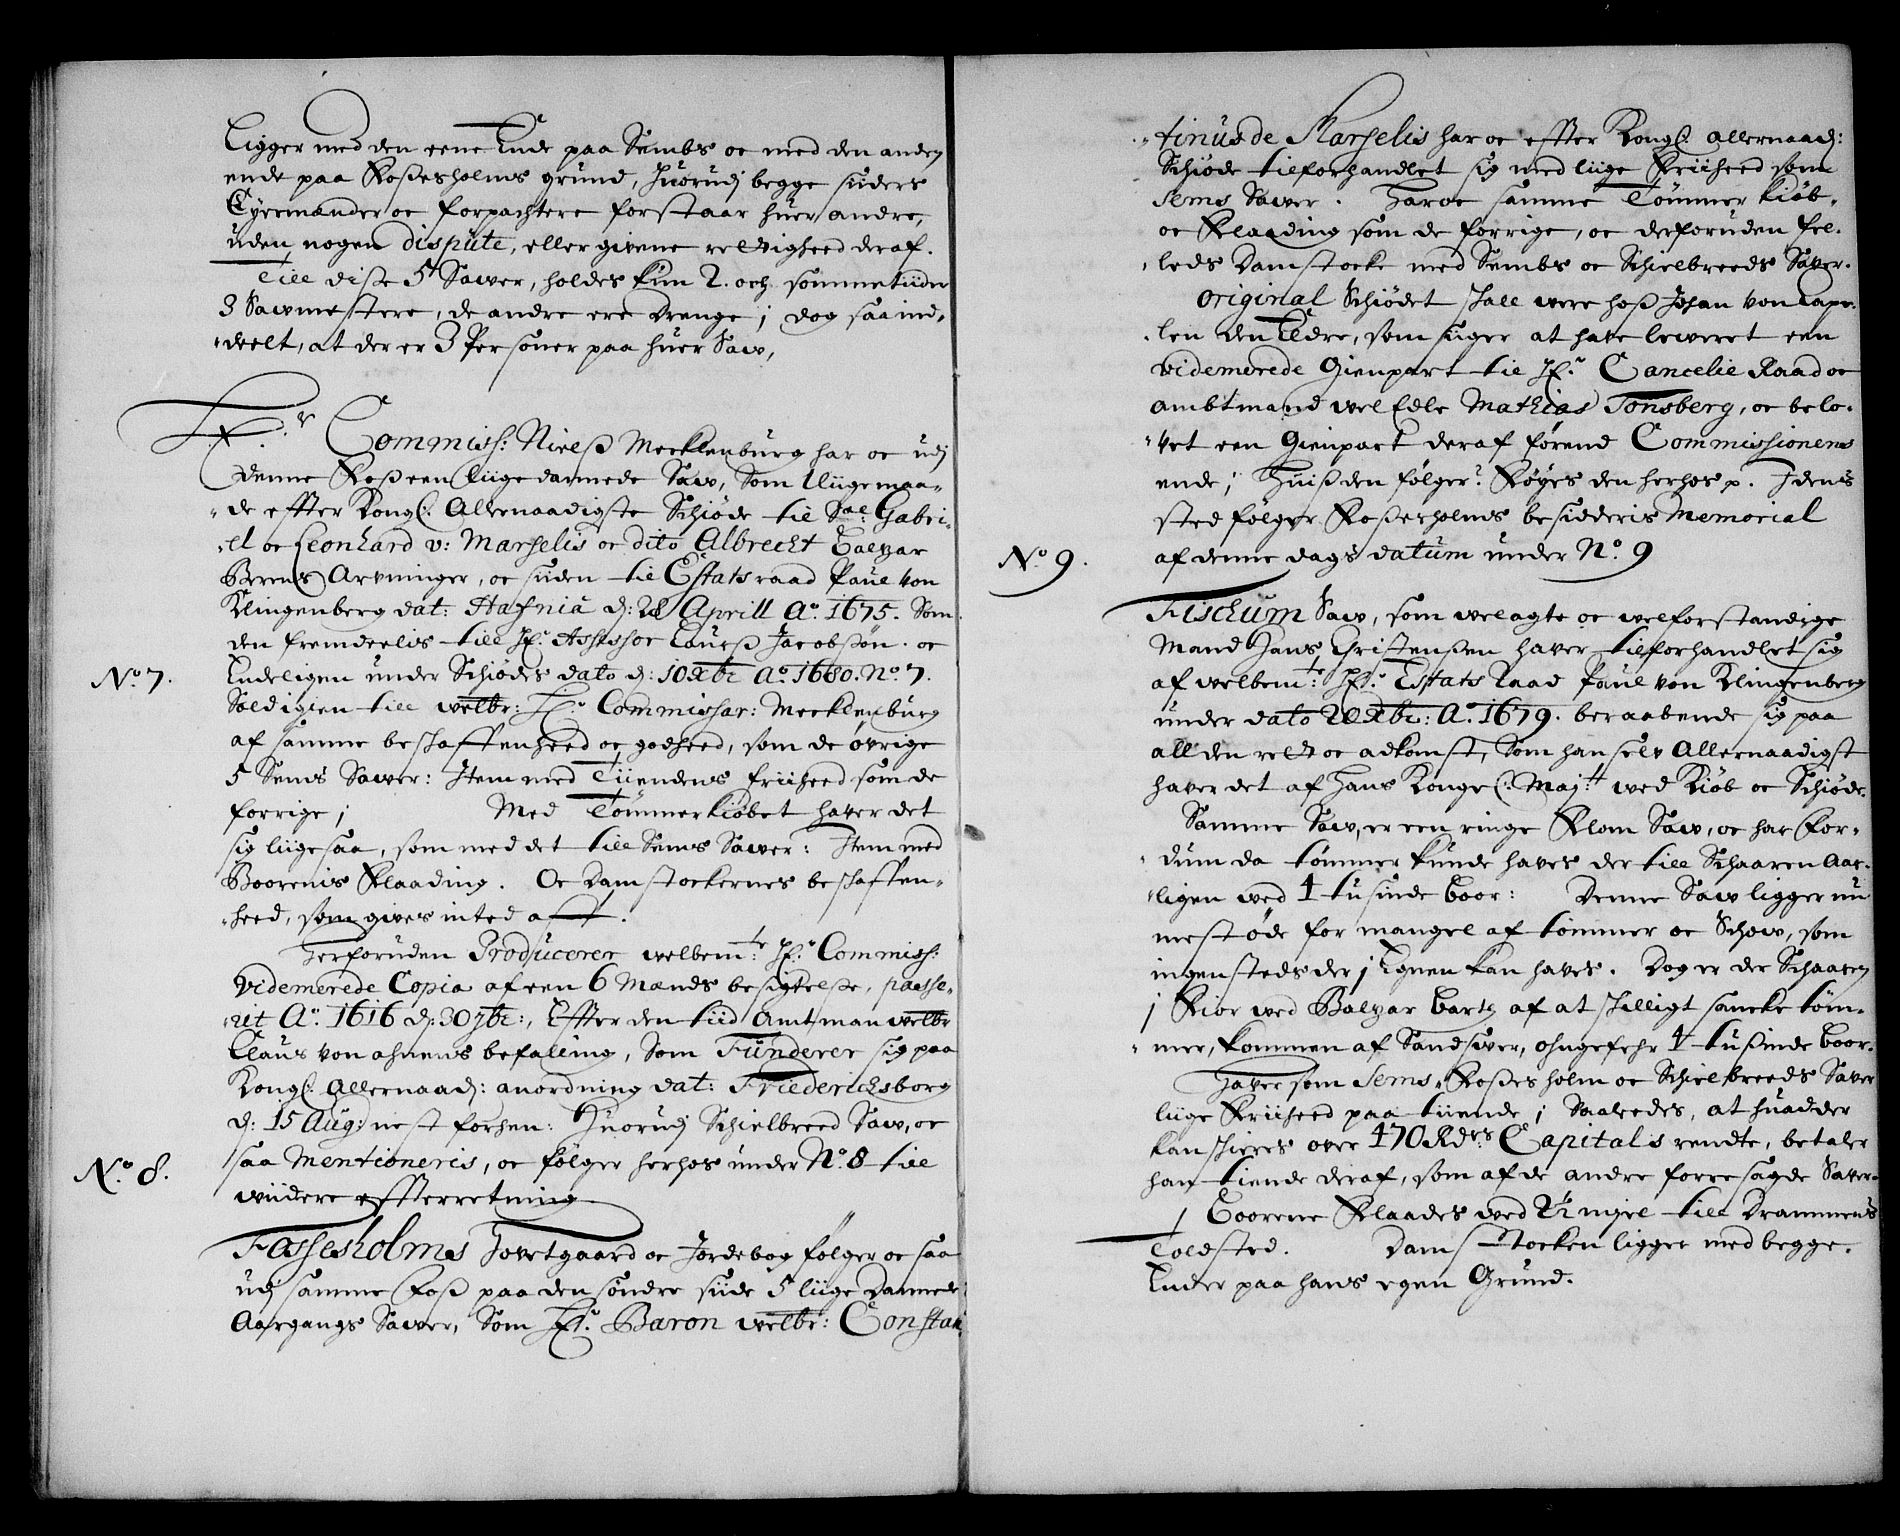 Ligger med den eene Ende paa Sembs oc med den anden
ende paa Foßesholms grund, Huorudj begge siiders
Eyermænder oc forpachtere forstaar huer andre,
uden nogen dispüte, eller givene rettigheed deraf.
Till diße 5 Sawer, holdes kun 2. och sommetiider
3 Sawmestere, de andre ere Drenge; dog saa ind„
„delt, at der er 3 Persöner paa huer Saw,
Hr. Commiss: Nielß Mecklenburg har oc udj
denne Foß een liige dannede Saw, Som lliigemaa„
„de effter Kongl: Allernaadigste Schiöde til Sal: Gabri„
„el oc Leonhard v: Marselis oc dito Albrecht Baltzar
Berens Arvninger, oc siiden til Estatsraad Paul von
Klingenberg dat: Hafnia d: 28 Aprill Ao. 1675. Som
den fremdeelis till Hr. Assessor Lauers Jacobsön. oc
No. 7.
Endeligen under Schiödes dato d: 10 Xbr Ao. 1680. No. 7.
Soldigien till welbr: Hr. Commissar: Mecklenburg
af samme beskaffenheed oc godheed, som de övrige
5 Sems Sawer: Item med Tiiendens friiheed som de
forrige; Med Tömmerkiöbet haver det
sig liigesaa, som med det till Sems Sawer: Item med
Boorenis Flaading. Oc Damstockernes beskaffen„
„heed, som gives inted af.
Herforuden Producerer welbemte: Hr. Commiss:
Videmerede Copia af een 6 Mænds besigtelße, passe„
„ret Ao. 1616 d: 30 7br:, Effter den tiid Amtman welbr
Claus von ahnens befalling, Som Funderer sig paa
Kongl: Allernaad: anordning dat: Friederichsborg
d: 15 Aug: nest forhen: Huorudj Schielbreed Saw, oc
No. 8.
saa Mentioneris, oc fölger herhos under No. 8 till
wiidere effterretning
Fossesholms Hovetgaard oc Jordebog fölger oc saa
udj samme Foß paa den söndre siide 5 liige Dannede
Aargangs Sawer, Som Hr. Baron welbr: Constan„
„tinus de Marselis har oc effter Kongl: allernaad:
Schiöde tilforhandlet sig med liige Friiheed som
Sems Sawer. Haroc samme Tömmer kiöb„
oc Flaading som de forrige, oc derforuden fel„
„leds Damstocke med Sembs oc Schielbreeds Sawer.
Original Schiödet skall were hoß Johan von Cape„
„len den Eldre, som siiger at have leweret een
Videmerede Gienpart til Hr. Cancelie Raad oc
ambtmand wel Edle Mathias Tönsberg, oc belo„
„vet een Gienpart deraf förend Commissionens
ende; Huiß den fölger? Föyes den herhos p. Idens
sted fölger Foßesholms besidderis Memorial
No. 9.
af denne dags datum under No. 9
Fischum Saw, som welagte oc welforstandige
Mand Hans Christenßen haver tilforhandlet sig
af welbemte: Hr. Estats Raad Paul von Klingenberg
under dato 20 Xbr: Ao. 1679. beraabende sig paa
all den rett oc adkomst, Som han selv Allernaadigst
haver det af Hans Kongel: Majtt: wed Kiöb oc Schiöde.
Samme Saw, er een ringe Flom Saw, oc har For„
„dum da tömmer kunde haves der till Schaaren aar„
„ligen wed 4 tusinde boor: Denne Saw ligger nu
mest öde for mangel af tömmer oc Schow, som
ingensteds der j Egnen kan haves. Dog er der Schaaren
j Fior wed Baltzar bartz af at skilligt sancke töm„
„mer, kommen af Sandswer, ohngefehr 4 tußinde boor.
Haver som Sems, Foßesholm oc Schielbreeds Sawer
liige Friiheed paa tiiende; Saaledes, at huad der
kan skieres over 470 Rdrs Capitals rendte, betaler
han tiende deraf, som af de andre forresagde Sawer.
j Boorene Flaades wed 2½ miyel till Drammens
Toldsted. Damstocken ligger med begge
Ender paa hans egen Grund.